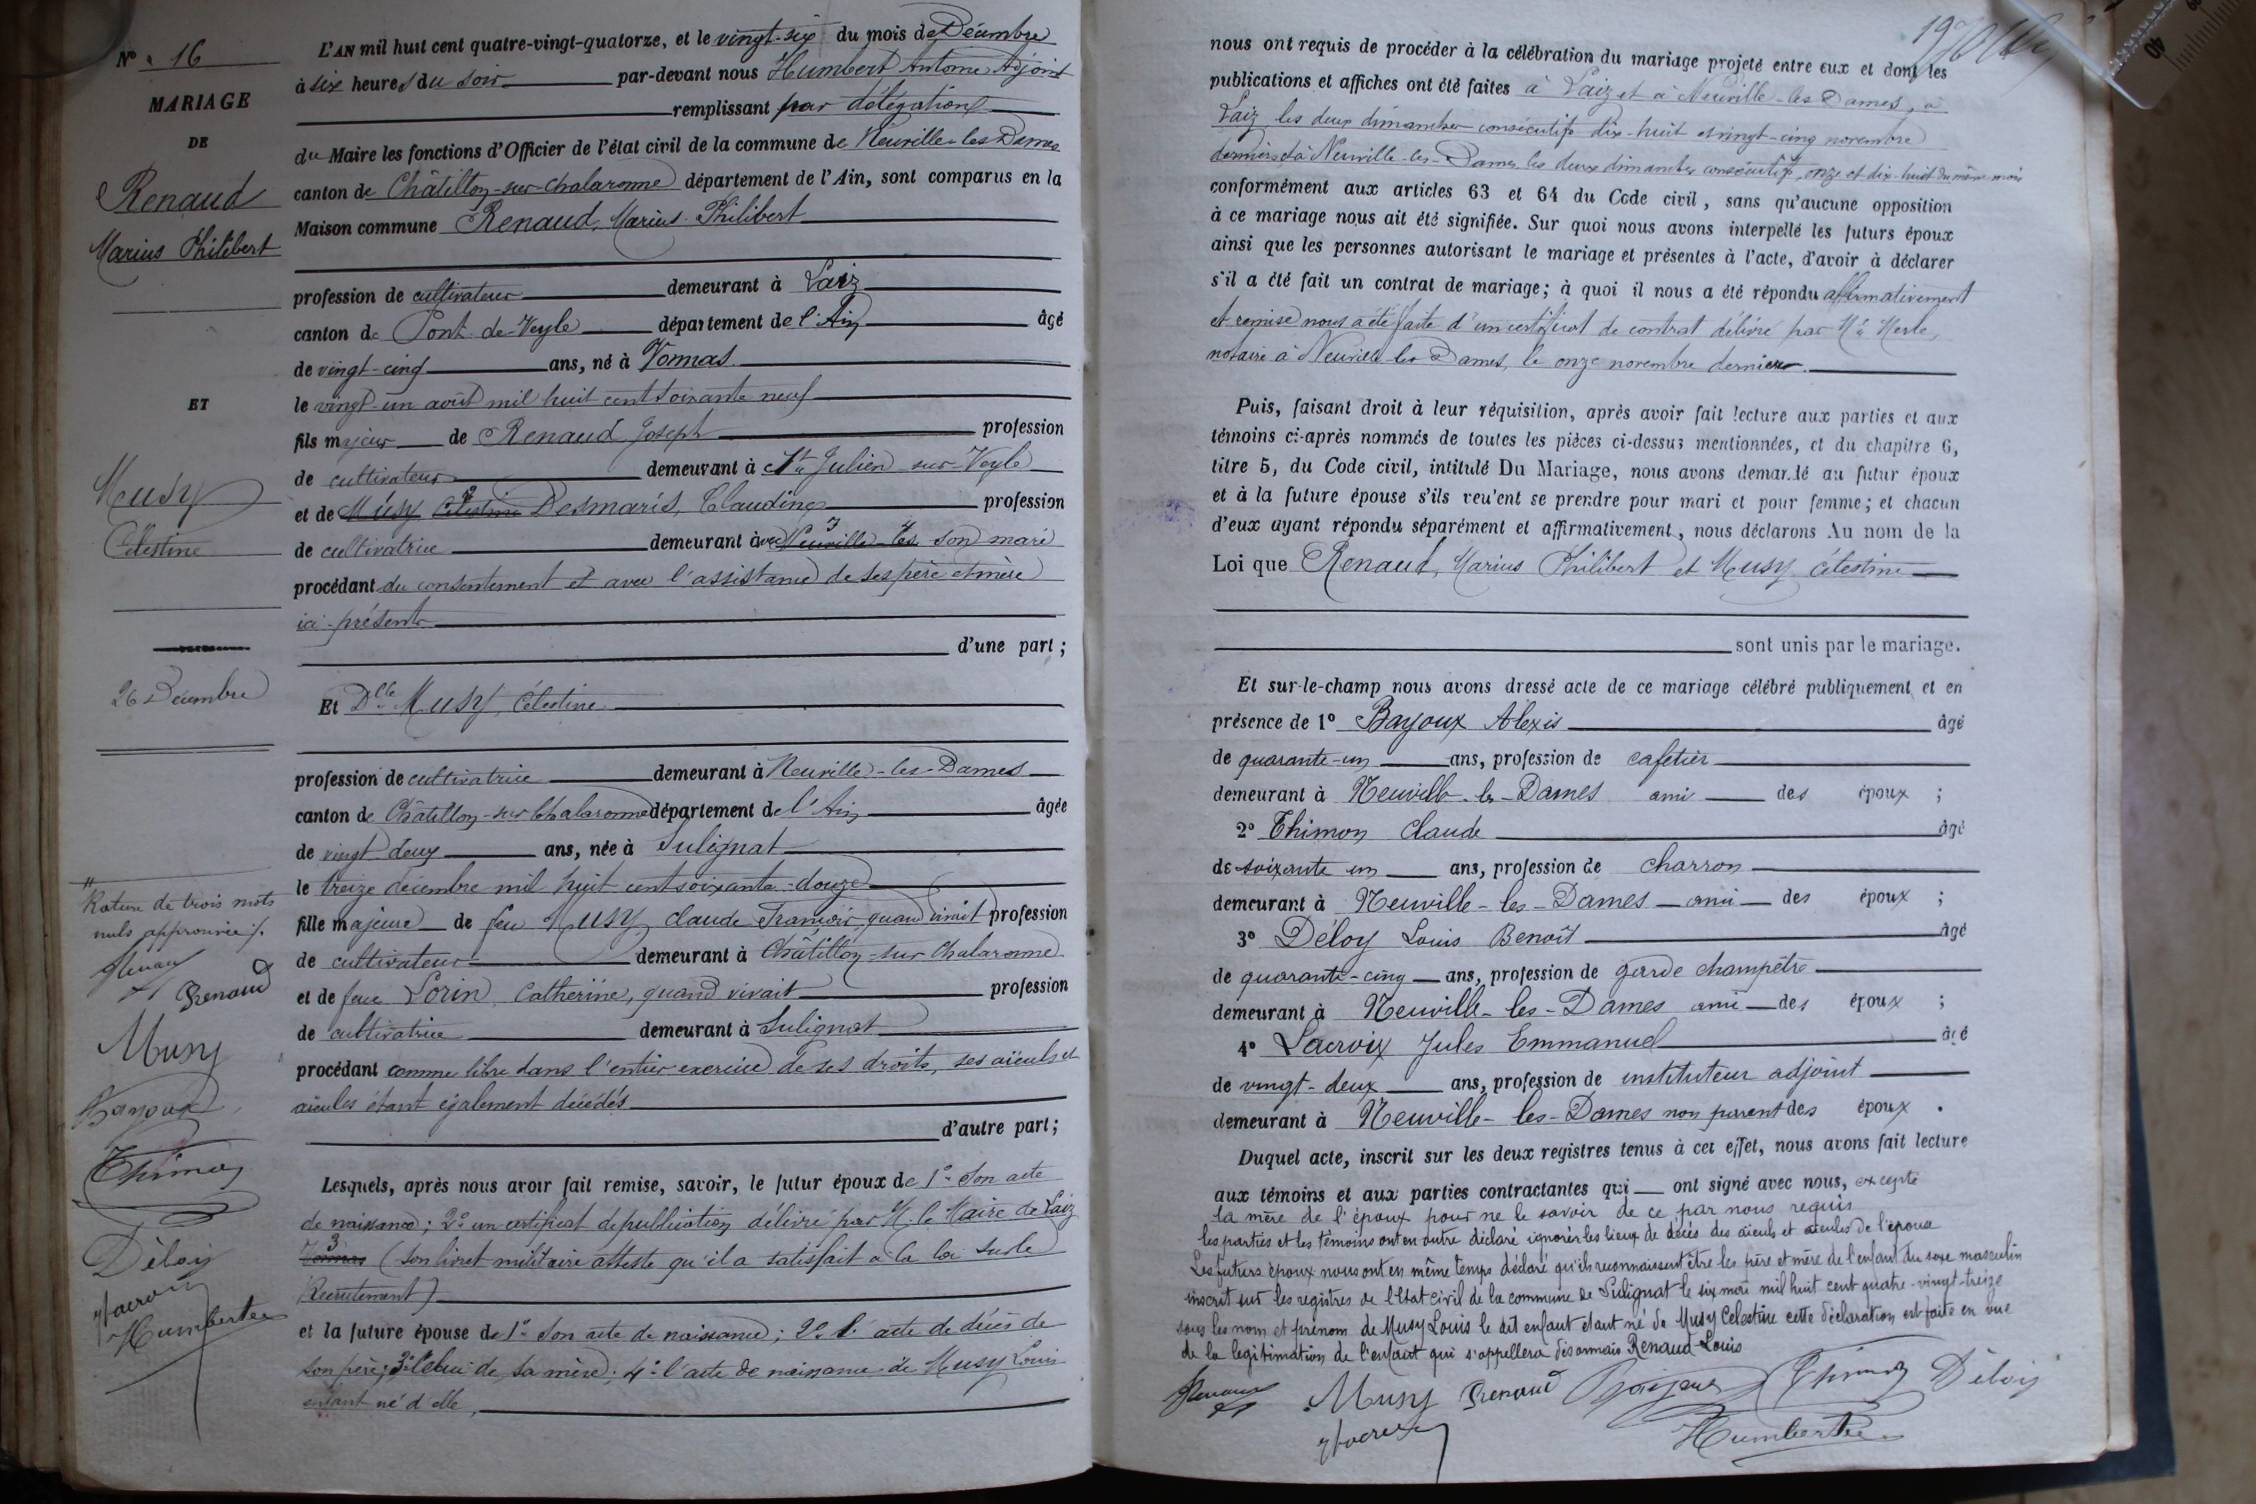 N° 16
MARIAGE
DE
Renaud
Marius Philibert
ET
Musy
Célestine
26 Décembre
Rature de trois mots
nuls approuvée /.
Renaud
Musy
Thimon
Déloy
Lacroix
Humbert
L'AN mil huit cent quatre-vingt-quatorze, et le vingt-six du mois de Décembre
à six heures du soir par-devant nous Humbert Antoine Adjoint
remplissant par délégation
du Maire les fonctions d'Officier de l'état civil de la commune de Neuville-les-Dames
canton de Châtillon-sur-Chalaronne département de l'Ain, sont comparus en la
Maison commune Renaud, Marius Philibert
profession de cultivateur demeurant à Laiz
canton de Pont-de-Veyle département de l'Ain âgé
de vingt-cinq ans, né à Vonnas
le vingt-un août mil huit cent soixante neuf
fils majeur de Renaud Joseph profession
de cultivateur demeurant à St Julien-sur-Veyle
et de Musy Célestine Desmaris, Claudine profession
de cultivatrice demeurant à avec Neuville-les son mari
procédant du consentement et avec l'assistance de ses père et mère
ici présents
d'une part ;
Et Dlle Musy, Célestine
profession de cultivatrice demeurant à Neuville-les-Dames
canton de Châtillon-sur-Chalaronne département de l'Ain âgée
de vingt-deux ans, née à Sulignat
le treize décembre mil huit cent soixante-douze
fille majeure de feu Musy, Claude François, quand vivait profession
de cultivateur demeurant à Châtillon-sur-Chalaronne
et de feue Lorin Catherine, quand vivait profession
de cultivatrice demeurant à Sulignat
procédant comme libre dans l'entier exercice de ses droits, ses aïeuls et
aïeules étant également décédés
d'autre part ;
Lesquels, après nous avoir fait remise, savoir, le futur époux de 1° Son acte
de naissance ; 2° un certificat de publication délivré par M. le Maire de Laiz
Vonnas (Son livret militaire atteste qu'il a satisfait à la loi sur le
Recrutement)
et la future épouse de 1° Son acte de naissance ; 2° l'acte de décès de
son père ; 3° celui de sa mère ; 4° l'acte de naissance de Musy Louis
enfant né d'elle,
nous ont requis de procéder à la célébration du mariage projeté entre eux et dont les
publications et affiches ont été faites à Laiz et à Neuville-les-Dames, à
Laiz les deux dimanches consécutifs dix-huit et vingt-cinq novembre
derniers et à Neuville-les-Dames les deux dimanches consécutifs, onze et dix-huit du même mois
conformément aux articles 63 et 64 du Code civil, sans qu'aucune opposition
à ce mariage nous ait été signifiée. Sur quoi nous avons interpellé les futurs époux
ainsi que les personnes autorisant le mariage et présentes à l'acte, d'avoir à déclarer
s'il a été fait un contrat de mariage ; à quoi il nous a été répondu affirmativement
et remise nous a été faite d'un certificat de contrat délivré par Me Merle,
notaire à Neuville-les-Dames, le onze novembre dernier.
Puis, faisant droit à leur réquisition, après avoir fait lecture aux parties et aux
témoins ci-après nommés de toutes les pièces ci-dessus mentionnées, et du chapitre 6,
titre 5, du Code civil, intitulé Du Mariage, nous avons demandé au futur époux
et à la future épouse s'ils veulent se prendre pour mari et pour femme ; et chacun
d'eux ayant répondu séparément et affirmativement, nous déclarons Au nom de la
Loi que Renaud, Marius Philibert et Musy, Célestine
sont unis par le mariage.
Et sur-le-champ nous avons dressé acte de ce mariage célébré publiquement et en
présence de 1° Bayoux Alexis âgé
de quarante-un ans, profession de cafetier
demeurant à Neuville-les-Dames ami des époux ;
2° Thimon Claude âgé
de soixante un ans, profession de charron
demeurant à Neuville-les-Dames ami des époux ;
3° Déloy Louis Benoît âgé
de quarante-cinq ans, profession de garde champêtre
demeurant à Neuville-les-Dames ami des époux ;
4° Lacroix Jules Emmanuel âgé
de vingt-deux ans, profession de instituteur adjoint
demeurant à Neuville-les-Dames non parent des époux .
Duquel acte, inscrit sur les deux registres tenus à cet effet, nous avons fait lecture
aux témoins et aux parties contractantes qui ont signé avec nous, excepté
la mère de l'époux pour ne le savoir de ce par nous requis
les parties et les témoins ont en outre déclaré ignorer les lieux de décès des aïeuls et aïeules de l'épouse
Les futurs époux nous ont en même temps déclaré qu'ils reconnaissent être les père et mère de l'enfant du sexe masculin
inscrit sur les registres de l'Etat civil de la commune de Sulignat le six mars mil huit cent quatre-vingt-treize
sous les nom et prénom de Musy Louis le dit enfant étant né de Musy Célestine cette déclaration est faite en vue
de la légitimation de l'enfant qui s'appellera désormais Renaud Louis
Musy Renaud Bayoux Thimon Déloy
Lacroix Humbert